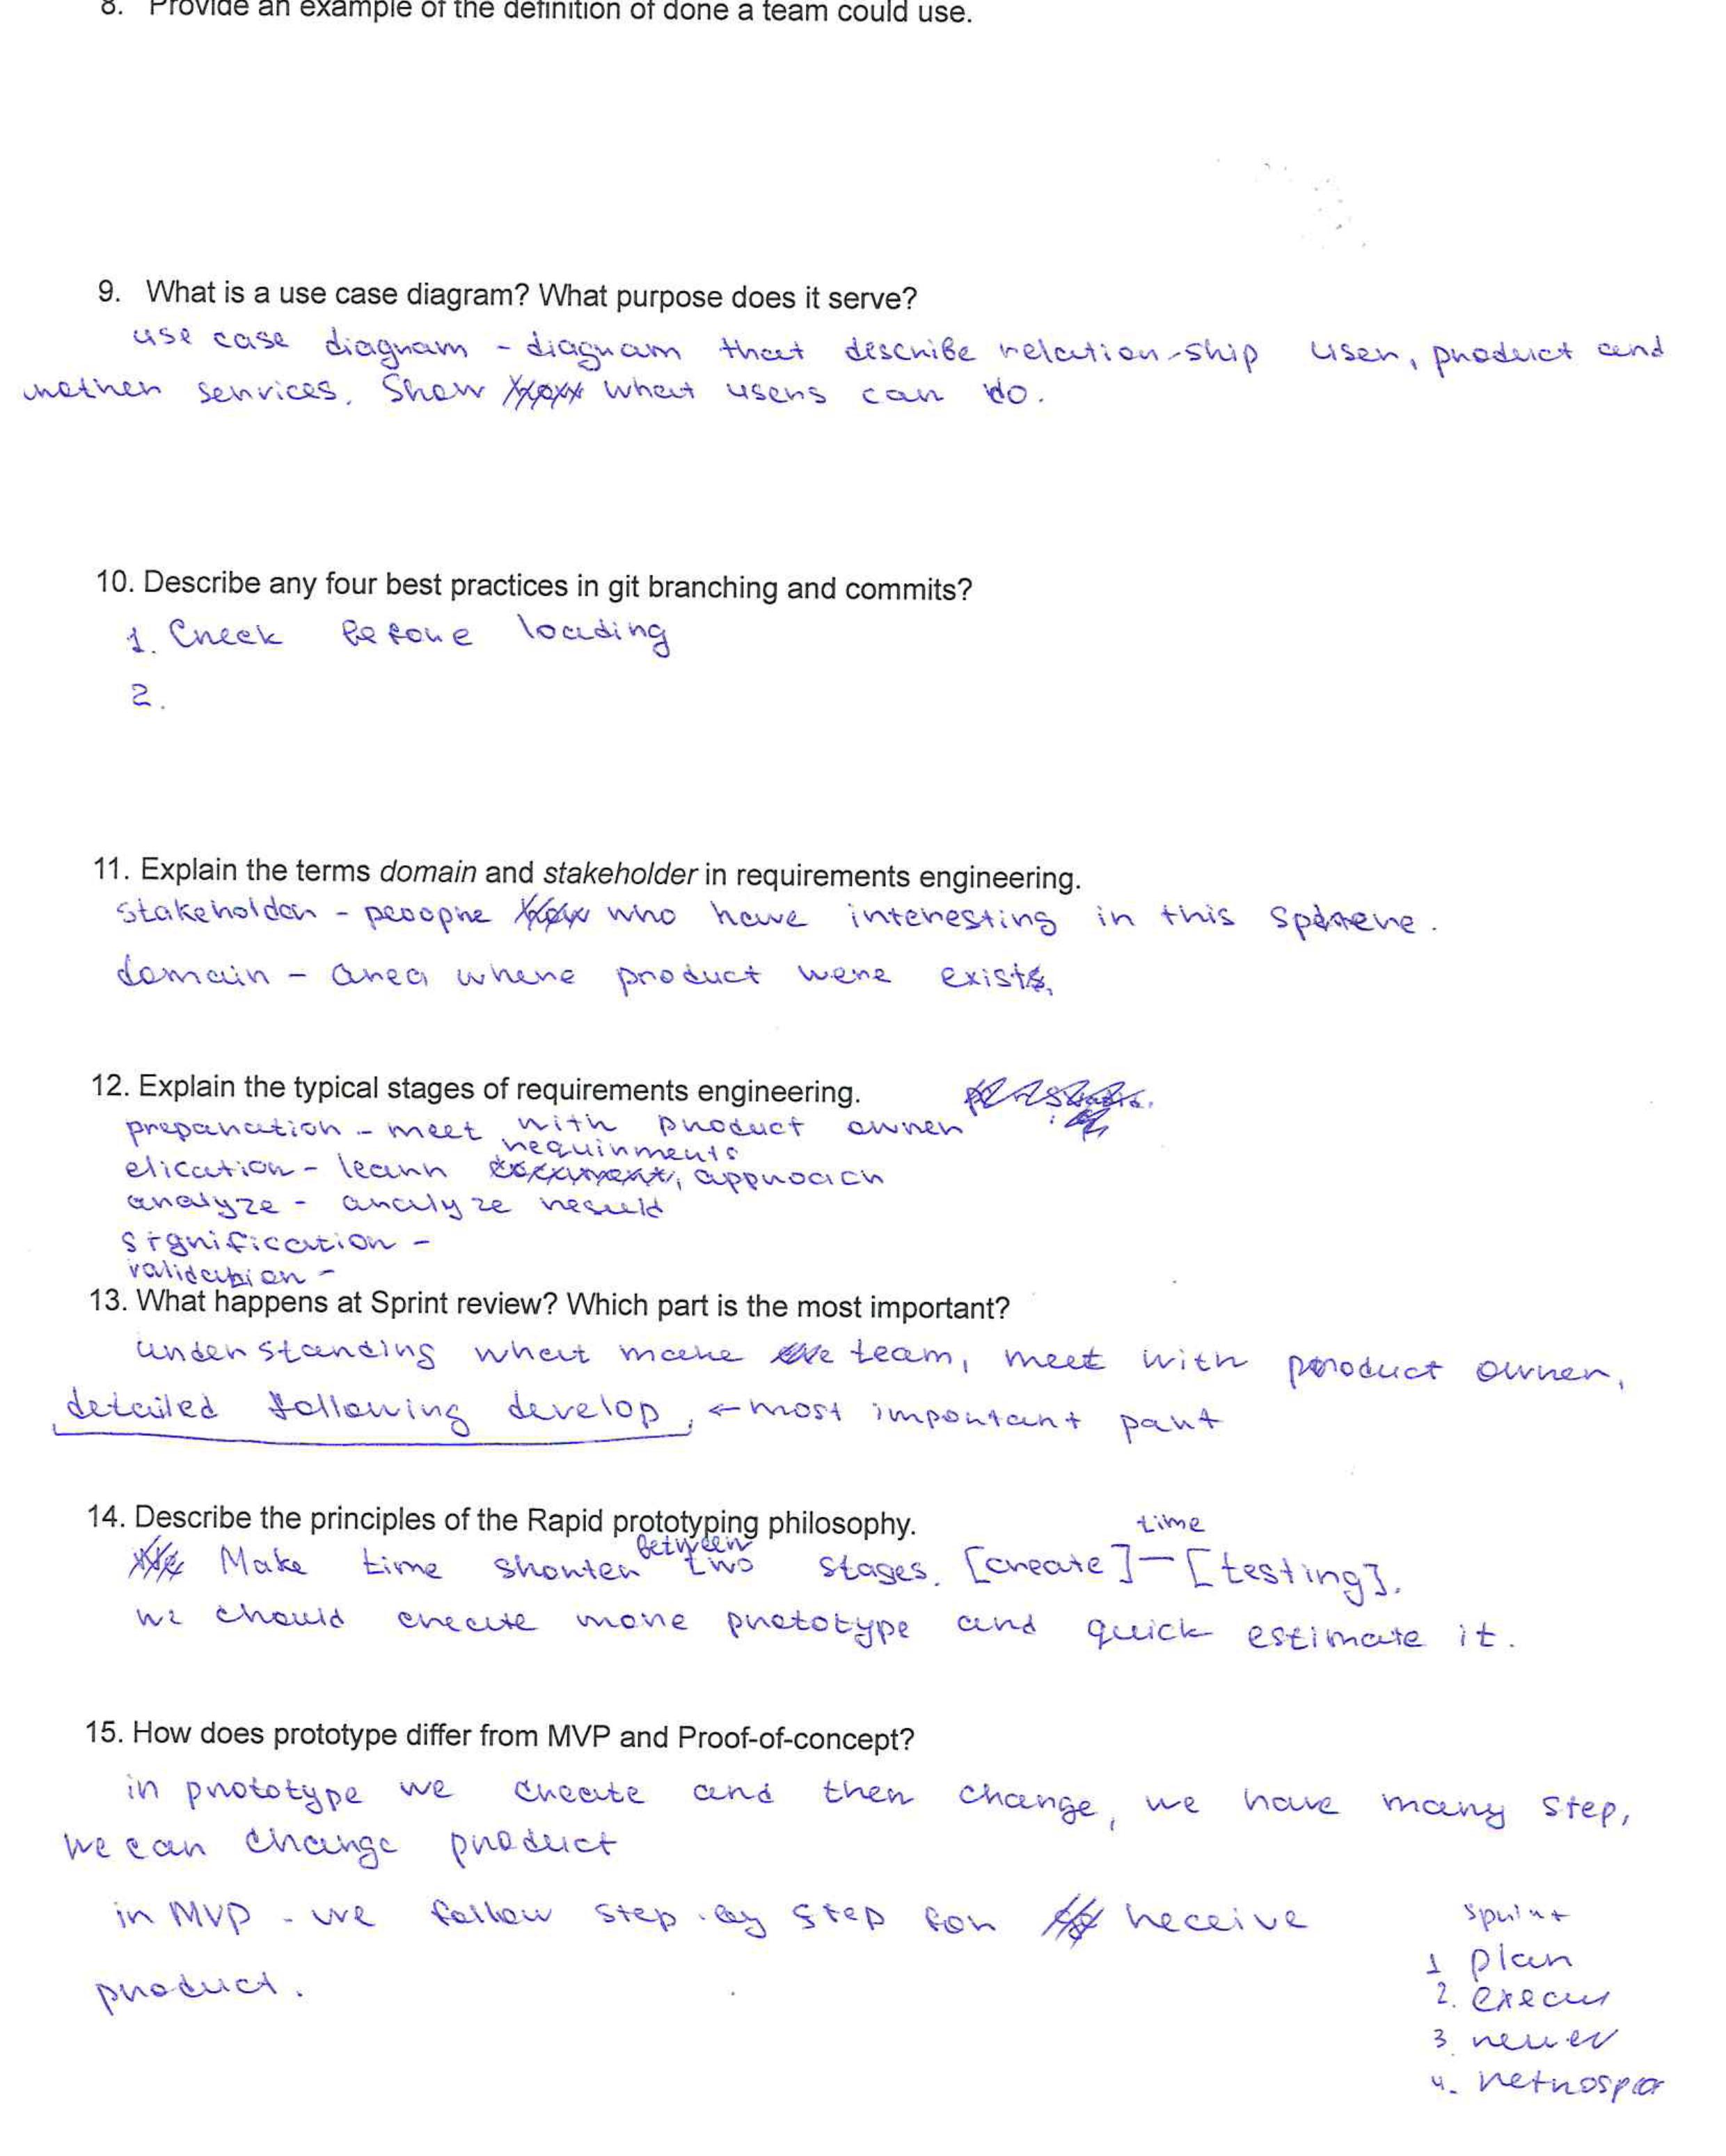 8. Provide an example of the definition of done a team could use.
9. What is a use case diagram? What purpose does it serve?
use case diagram - diagram that describe relation-ship user, product and
services. Show what users can do.
10. Describe any four best practices in git branching and commits?
1. Check before loading
2.
11. Explain the terms domain and stakeholder in requirements engineering.
stakeholder - who have interesting in this
domain - area where product were exists.
12. Explain the typical stages of requirements engineering.
preparation - meet with product owner
requirments
elication - learn , approach
analyze - analyze
signification -
validation -
13. What happens at Sprint review? Which part is the most important?
understanding what make team, meet with product owner,
detailed following develop, ← most important part
14. Describe the principles of the Rapid prototyping philosophy.
time
between
Make time shorter two stages. [create] — [testing].
we should create more prototype and quick estimate it.
15. How does prototype differ from MVP and Proof-of-concept?
in prototype we create and then change, we have many step,
we can change product
in MVP - we follow step by step for receive
product.
sprint
1 plan
2. execu
3. review
4. retrospe